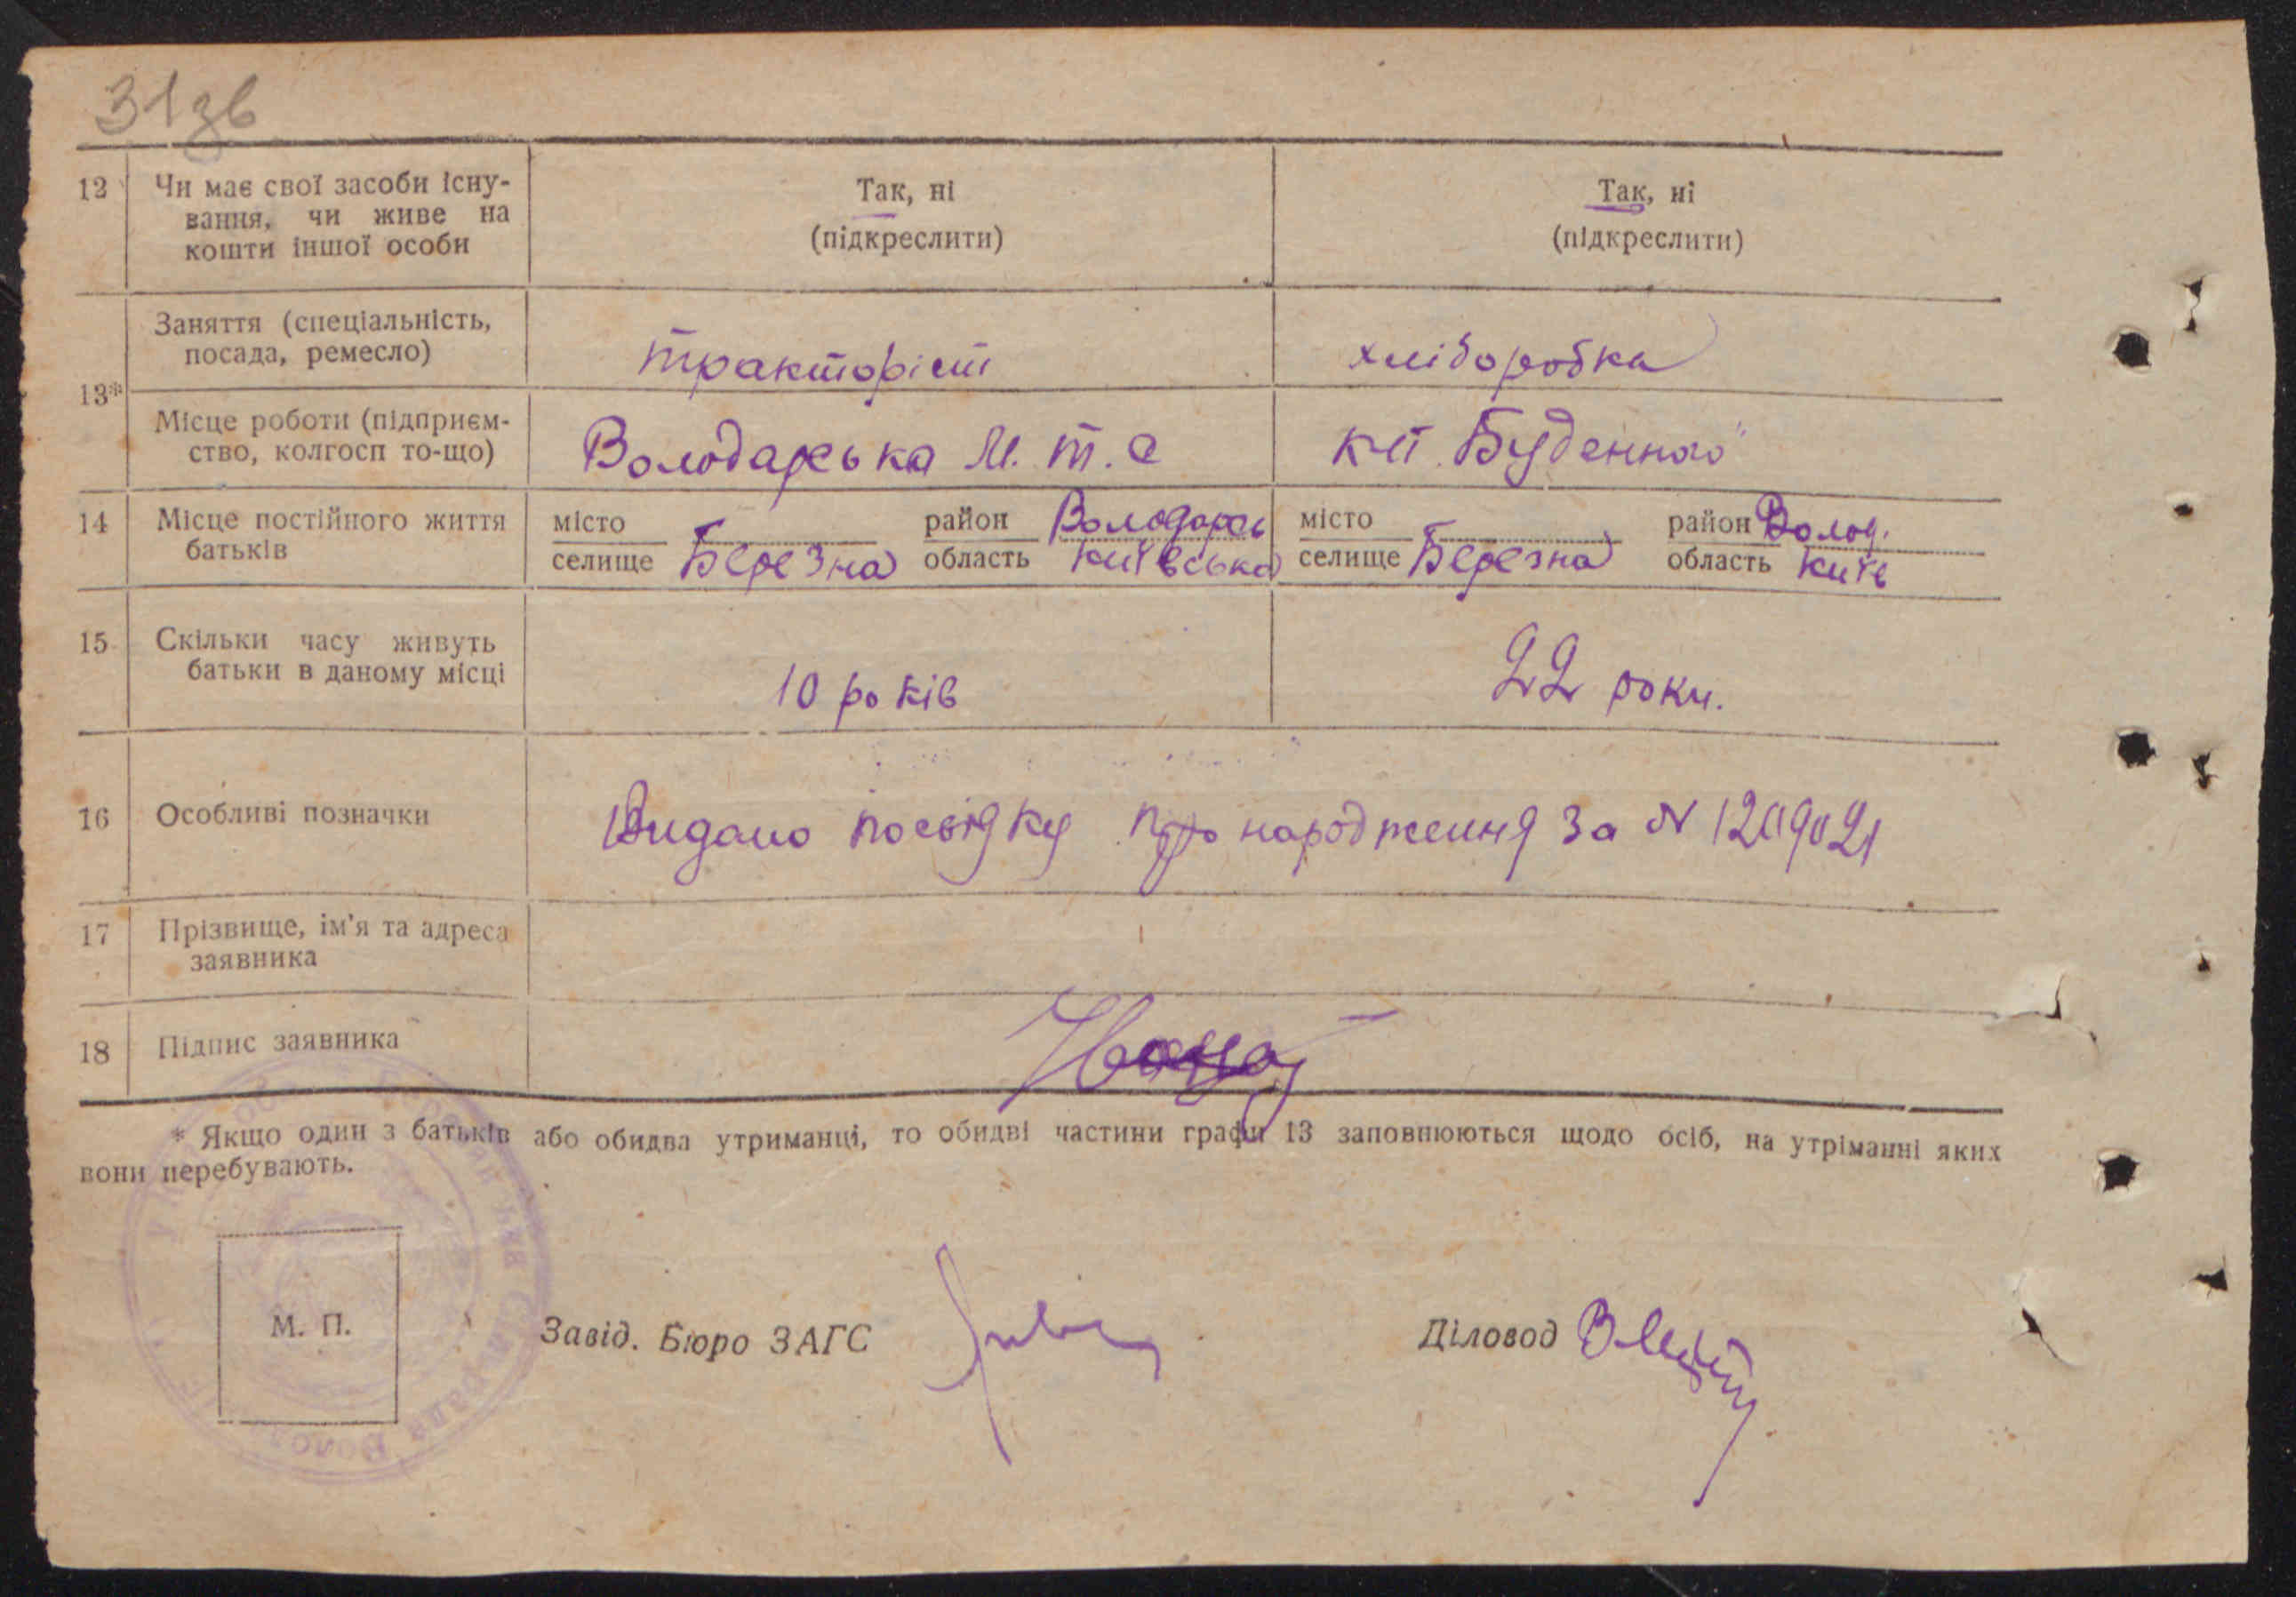 31зв
12 Чи має свої засоби існу- Так, ні Так, ні
вання, чи живе на (підкреслити) (підкреслити)
кошти іншої особи
Заняття (спеціальність, тракторіст хліборобка
посада, ремесло)
13*
Місце роботи (підприєм- Володарська М. т. с кп. Буденного"
ство, колгосп то-що)
14 Місце постійного життя місто район Володарсь місто район Волод.
батьків селище Березна область київська селище Березна область Київ
15 Скільки часу живуть
батьки в даному місці 10 років 22 роки.
16 Особливі позначки Видано посвідку про народження за № 1209021
17 Прізвище, ім'я та адреса
заявника
18 Підпис заявника
* Якщо один з батьків або обидва утриманці, то обидві частини графи 13 заповнюються щодо осіб, на утріманні яких
вони перебувають.
М. П. Завід. Бюро ЗАГС Діловод